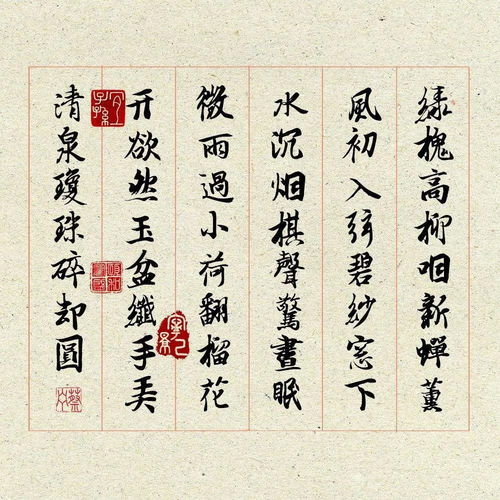 綠槐高柳咽新蟬薰
風初入弦碧紗窓下
水沉烟棋聲驚晝眠
微雨過小荷翻榴花
开欲然玉盆纖手弄
清泉瓊珠碎却圓